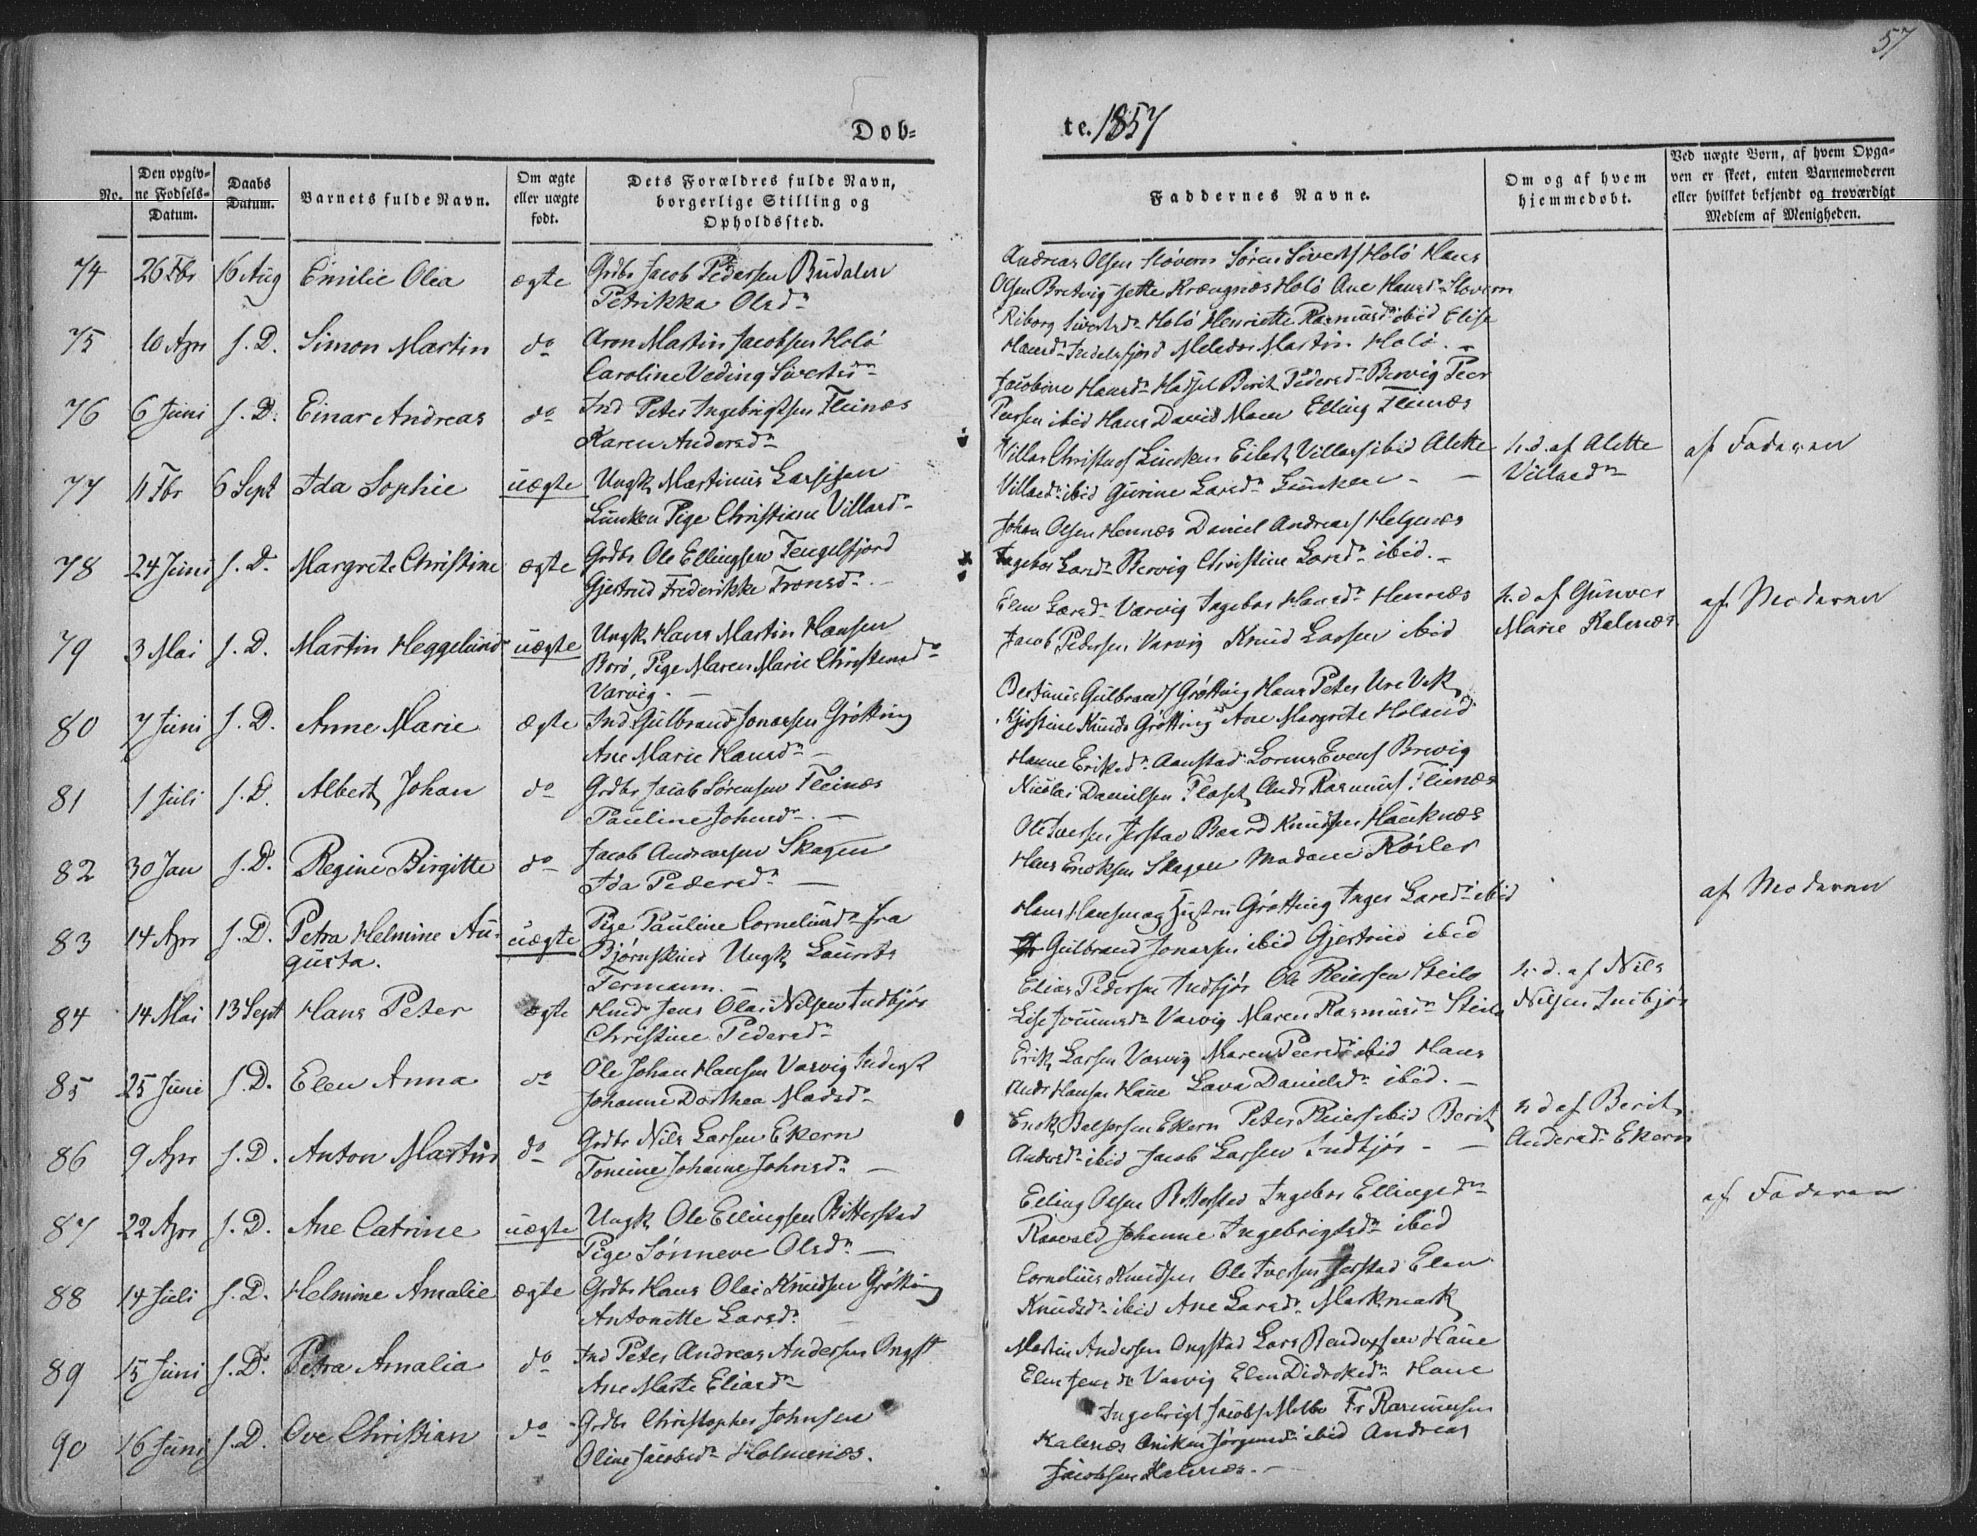 57
Døb-
te. 1857
No.
Den opgiv-
ne Fødsels-
Datum.
Daabs
Datum.
Barnets fulde Navn.
Om ægte
eller uægte
født.
Dets Forældres fulde Navn,
borgerlige Stilling og
Opholdssted.
Faddernes Navne.
Om og af hvem
hjemmedøbt.
Ved uægte Børn, af hvem Opga-
ven er skeet, enten Barnemoderen
eller hvilket bekjendt og troværdigt
Medlem af Menigheden.
74 26 Fbr 16 Aug Emilie Olea ægte Grdbr Jacob Pedersen Budalen
Petrikka Olsdr
Andreas Olsen Sløveren Søren Sivertsf Holø Hans
Olsen Bretvig Jette Krængnæs Holø Ane Hansdr Sløveren
75 10 Apr s. D. Simon Martin do Aron Martin Jacobsen Holø
Caroline Veding Sivertsdr
Riborg Sivertsdr Holø Henriette Rasmusdr ibid Elise
Hansdr Indrefjord Meledor Martin Holø.
76 6 Juni s. D. Einar Andreas do Ind Peter Ingebrigtsen Fleinæs
Karen Andersdr
Jacobine Hansdr Hadsel Berit Pedersdr Bervig Peer
Peersen ibid Hans David Maer Elling Fleinæs
77 11 Fbr 6 Sept Ida Sophie uægte Ungk Martinus Larsisen
Lunken Pige Christiane Villardr
Villas Christoph Lunken Eilert Villasf ibid Alette
Villasdr ibid Gurine Larsdr Lunken
h. d. af Alette
Villasdr
af Faderen
78 24 Juni s. D. Margrete Christine ægte Grdbr Ole Ellingsen Tengelfjord
Gjertrud Frederikke Tronsdr
Johan Olsen Hennæs Daniel Andreasf Helgenæs
Ingebor Larsdr Bervig Christine Larsdr ibid.
79 3 Mai s. D. Martin Heggelund uægte Ungk Hans Martin Hansen
Borø, Pige Maren Marie Christensdr
Varvig.
Elen Larsdr Varvig Ingebor Hansdr Hennæs
Jacob Pedersen Varvig Knud Larsen ibid
h. d af Gunver
Marie Kalnæs
af Moderen
80 7 Juni s. D. Anne Marie ægte Ind Gulbrand Jonassen Grøtting
Ane Marie Hansdr
Bertinus Gulbrandsf Grøtting Hans Peter Ure Vik
Kjerstine Knuds Grøtting Ane Margrete Holand
81 1 Juli s. D. Albert Johan do Grdbr Jacob Sørensen Fleinæs
Pauline Johnsdr
Hanne Eriksdr Aanstad Lorens Evensf Brevig
Nicolai Danielsen Flaset Ands Rasmusf Fleinæs
82 30 Jan s. D. Regine Birgitte do Jacob Andreassen Skagen
Ida Pedersdr
Ole Iversen Jerstad Baard Knudsen Hauknæs
Hans Enoksen Skagen Madame Røiler
83 14 Apr s. D. Petra Helmine Au-
gusta.
uægte Pige Pauline Corneliusdr fra
Bjørnskind Ungk Laurits
Fermann.
Hans Hansen og Hustru Grøtting Inger Larsdr ibid
Gulbrand Jonassen ibid Gjertrud ibid
af Moderen
84 14 Mai 13 Sept Hans Peter ægte Hmd Jens Olai Nilsen Indbjør
Christine Pedersdr
Elias Pedersen Indbjør Ole Reiersen Steilo
Lise Joeninsdr Varvig Maren Rasmusdr Steilo
h. d. af Nils
Nilsen Indbjør
85 25 Juni s. D. Elen Anna do Ole Johan Hansen Varvig Inderst
Johanne Dorthea Madsdr
Erik Larsen Varvig Maren Peersdr ibid Hans
Ands Hansen Haue Lava Danielsdr ibid.
86 9 Apr s. D. Anton Martin do Grdbr Nils Larsen Ekern
Tomine Johanne Johnsdr
Enok Balsersen Ekern Peter Reiersf ibid Berit
Andersdr ibid Jacob Larsen Indbjør
h. d af Berit
Andersdr Ekern
87 22 Apr s. D. Ane Catrine uægte Ungk Ole Ellingsen Ritterstad
Pige Sønneve Olsdr
Elling Olsen Ritterstad Ingebor Ellingsdr
Raavald Johanne Ingebrigtsdr ibid
af Faderen
88 14 Juli s. D. Helmine Amalie ægte Grdbr Hans Olai Knudsen Grøtting
Antonette Larsdr
Cornelius Knudsen Ole Iversen Jerstad Elen
Knudsdr ibid Ane Larsdr Markmark
89 15 Juni s. D. Petra Amalia do Ind Peter Andreas Andersen Ongst
Ane Marte Eliasdr
Martin Andersen Ongstad Lars Rendorfsen Haue
Elen Jensdr Varvig Elen Didriksdr Haue
90 16 Juni s. D. Ove Christian do Grdbr Christopher Johnsen
Oline Jacobsdr Holmenæs.
Ingebrigt Jacobs Melbo Fr Rasmussen
Kalsnæs Aniken Jørgensdr ibid Andreas
Jacobsen Kalsnæs.